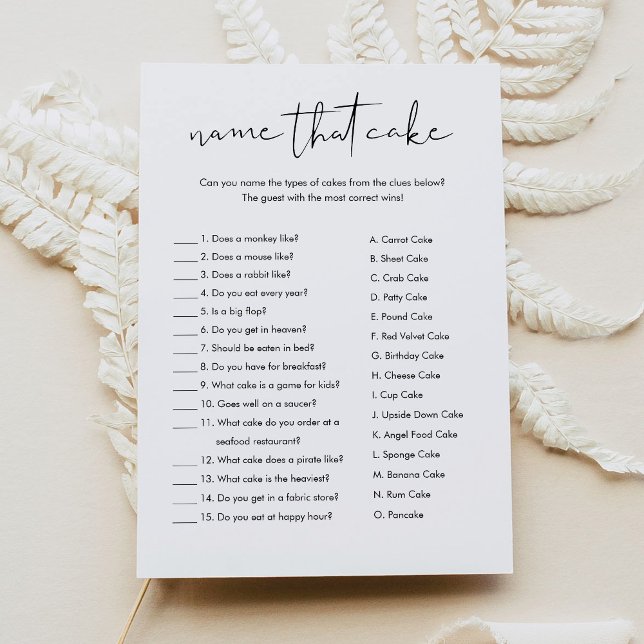 name that cake
Can you name the types of cakes from the clues below?
The guest with the most correct wins!
____ 1. Does a monkey like?
____ 2. Does a mouse like?
____ 3. Does a rabbit like?
____ 4. Do you eat every year?
____ 5. Is a big flop?
____ 6. Do you get in heaven?
____ 7. Should be eaten in bed?
____ 8. Do you have for breakfast?
____ 9. What cake is a game for kids?
____ 10. Goes well on a saucer?
____ 11. What cake do you order at a
seafood restaurant?
____ 12. What cake does a pirate like?
____ 13. What cake is the heaviest?
____ 14. Do you get in a fabric store?
____ 15. Do you eat at happy hour?
A. Carrot Cake
B. Sheet Cake
C. Crab Cake
D. Patty Cake
E. Pound Cake
F. Red Velvet Cake
G. Birthday Cake
H. Cheese Cake
I. Cup Cake
J. Upside Down Cake
K. Angel Food Cake
L. Sponge Cake
M. Banana Cake
N. Rum Cake
O. Pancake